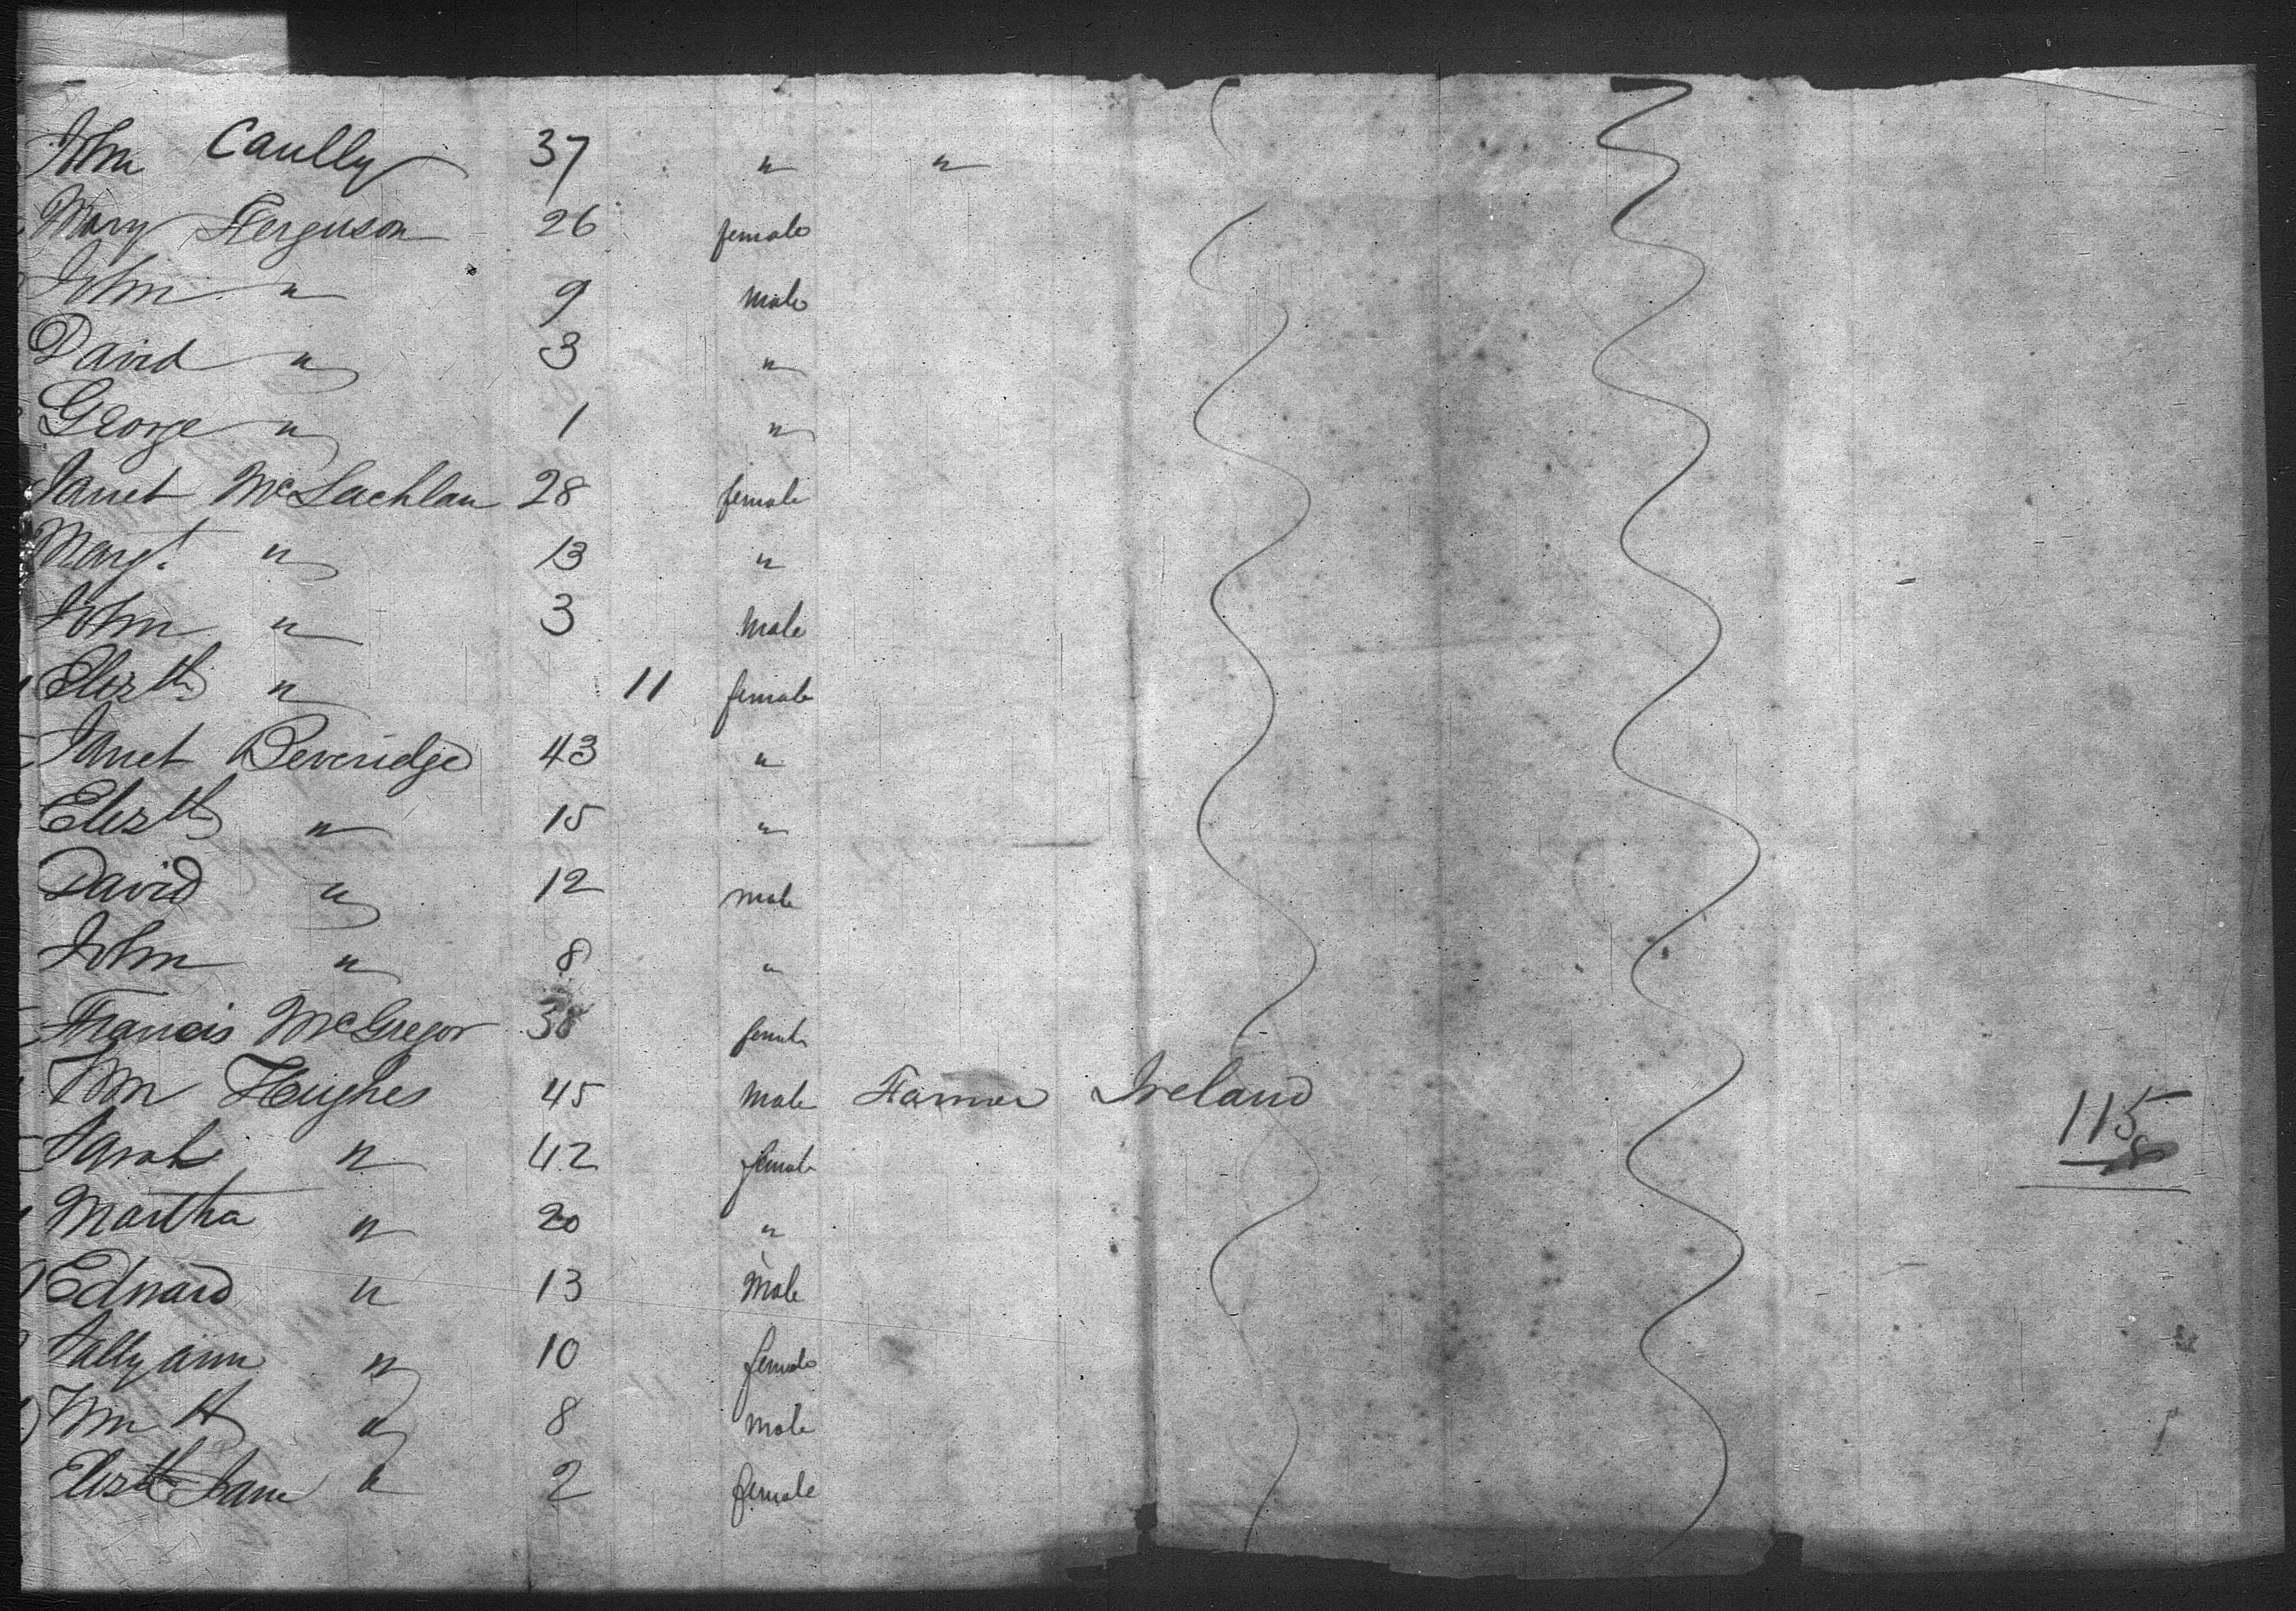 John Caully 37 " "
Mary Ferguson 26 female
John " 9 male
David " 3 "
George " 1 "
Janet McLachlan 28 female
Margt. " 13 "
John " 3 male
Elizth " 11 female
Janet Beveridge 43 "
Elizth " 15 "
David " 12 male
John " 8 "
Francis McGregor 38 female
Wm Hughes 45 male Farmer Ireland
Sarah " 42 female
115
Martha " 20 "
Edward " 13 male
Sally ann " 10 female
Wm H " 8 male
Elizth Jane " 2 female